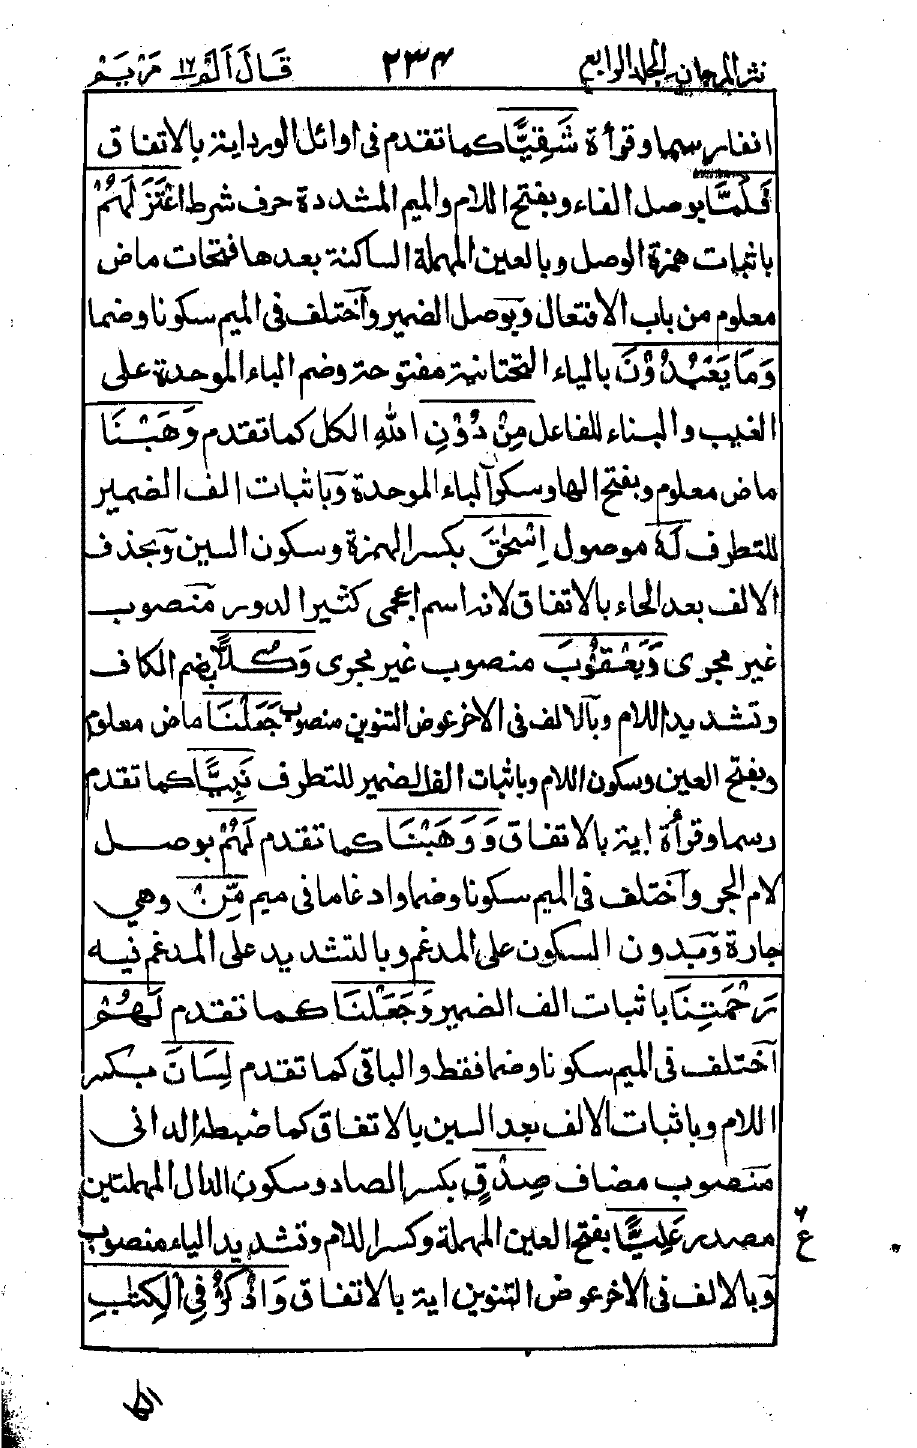 نثر المرجان الجلد الرابع ٢٣٤ قَالَ اَلَمْ ١٦ مَرْيَمْ
انفا رسما وقرأة شَقِيًّا كما تقدم فى اوائل الورد اية بالاتفاق
فَلَمَّا بوصل الفاء وبفتح اللام والميم المشددة حرف شرط اعْتَزَلَهُمْ
باثبات همزة الوصل وبالعين المهملة الساكنة بعدها فتحات ماض
معلوم من باب الافتعال وبوصل الضمير وآختلف فى الميم سكونا وضما
وَمَا يَعْبُدُوْنَ بالياء التحتانية مفتوحة وضم الباء الموحدة على
الغيب والبناء للفاعل مِنْ دُوْنِ اللهِ الكل كما تقدم وَهَبْنَا
ماض معلوم وبفتح الها وسكون الباء الموحدة وباثبات الف الضمير
للتطرف لَهٗ موصول اِسْحٰقَ بكسر الهمزة وسكون السين وبحذف
الالف بعد الحاء بالاتفاق لانه اسم اعجمى كثير الدور منصوب
غير مجرى وَيَعْقُوْبَ منصوب غير مجرى وَكُلًّا بضم الكاف
وتشديد اللام وبآلالف فى الاخر عوض التنوين منصوب جَعَلْنَا ماض معلوم
وبفتح العين وسكون اللام وباثبات الف الضمير للتطرف نَبِيًّا كما تقدم
رسما وقرأة اية بالاتفاق وَوَهَبْنَا كما تقدم لَهُمْ بوصل
لام الجر وآختلف فى الميم سكونا وضما وادغاما فى ميم مِّنْ وهي
جارة وبدون السكون على المدغم وبالتشديد على المدغم فيه
رَحْمَتِنَا باثبات الف الضمير وَجَعَلْنَا كما تقدم لَهُمْ
آختلف فى الميم سكونا وضما فقط والباقى كما تقدم لِسَانَ بكسر
اللام وباثبات الالف بعد السين بالاتفاق كما ضبطه الدانى
منصوب مضاف صِدْقٍ بكسر الصاد وسكون الدال المهملتين
مصدر عَلِيًّا بفتح العين المهملة وكسر اللام وتشديد الياء منصوب
وبالالف فى الاخر عوض التنوين اية بالاتفاق وَاذْكُرْ فِى الْكِتٰبِ
ع